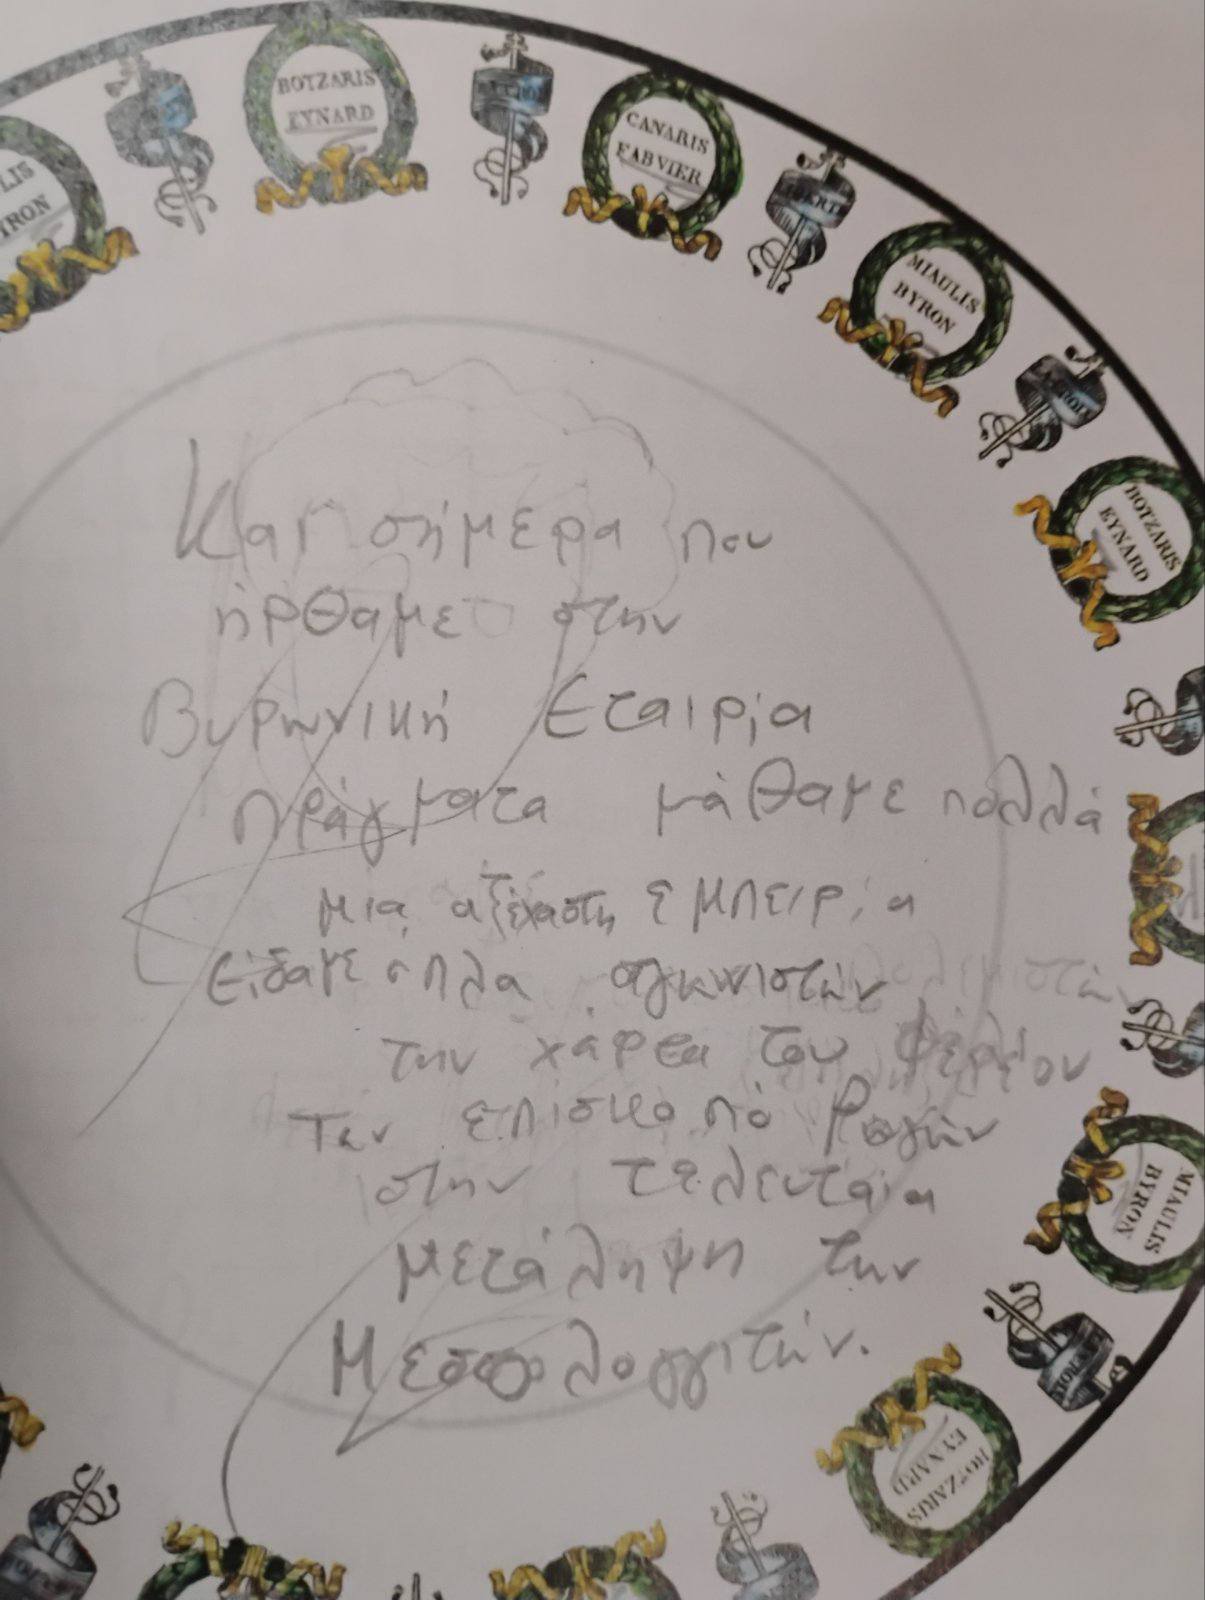 LIS
YRON
BOTZARIS
EYNARD
CANARIS
FABVIER
MIAULIS
BYRON
BOTZARIS
EYNARD
MIAULIS
BYRON
BOTZARIS
EYNARD
Και σήμερα που
ήρθαμε στην
Βυρωνική Εταιρία
πράγματα μάθαμε πολλά
μια αξέχαστη εμπειρία
είδαμε όπλα αγωνιστών
την χάρτα του Φεραίου
τον επίσκοπο Ρωγών
στην τελευταία
μετάληψη των
Μεσολογγιτών.